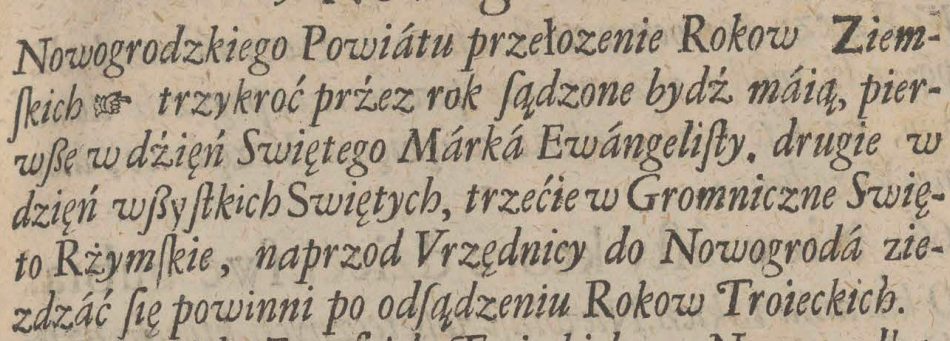 Nowogrodzkiego Powiátu przełozenie Rokow Ziem-
ſkich ☞ trzykroć prźez rok ſądzone bydź máią, pier-
wßę w dźięń Swiętego Márká Ewángeliſty. drugie w
dzięń wßyſtkich Swiętych, trzećie w Gromniczne Swię-
to Rżymſkie, naprzod Vrzędnicy do Nowogrodá zie-
zdzáć się powinni po odſądzeniu Rokow Troieckich.